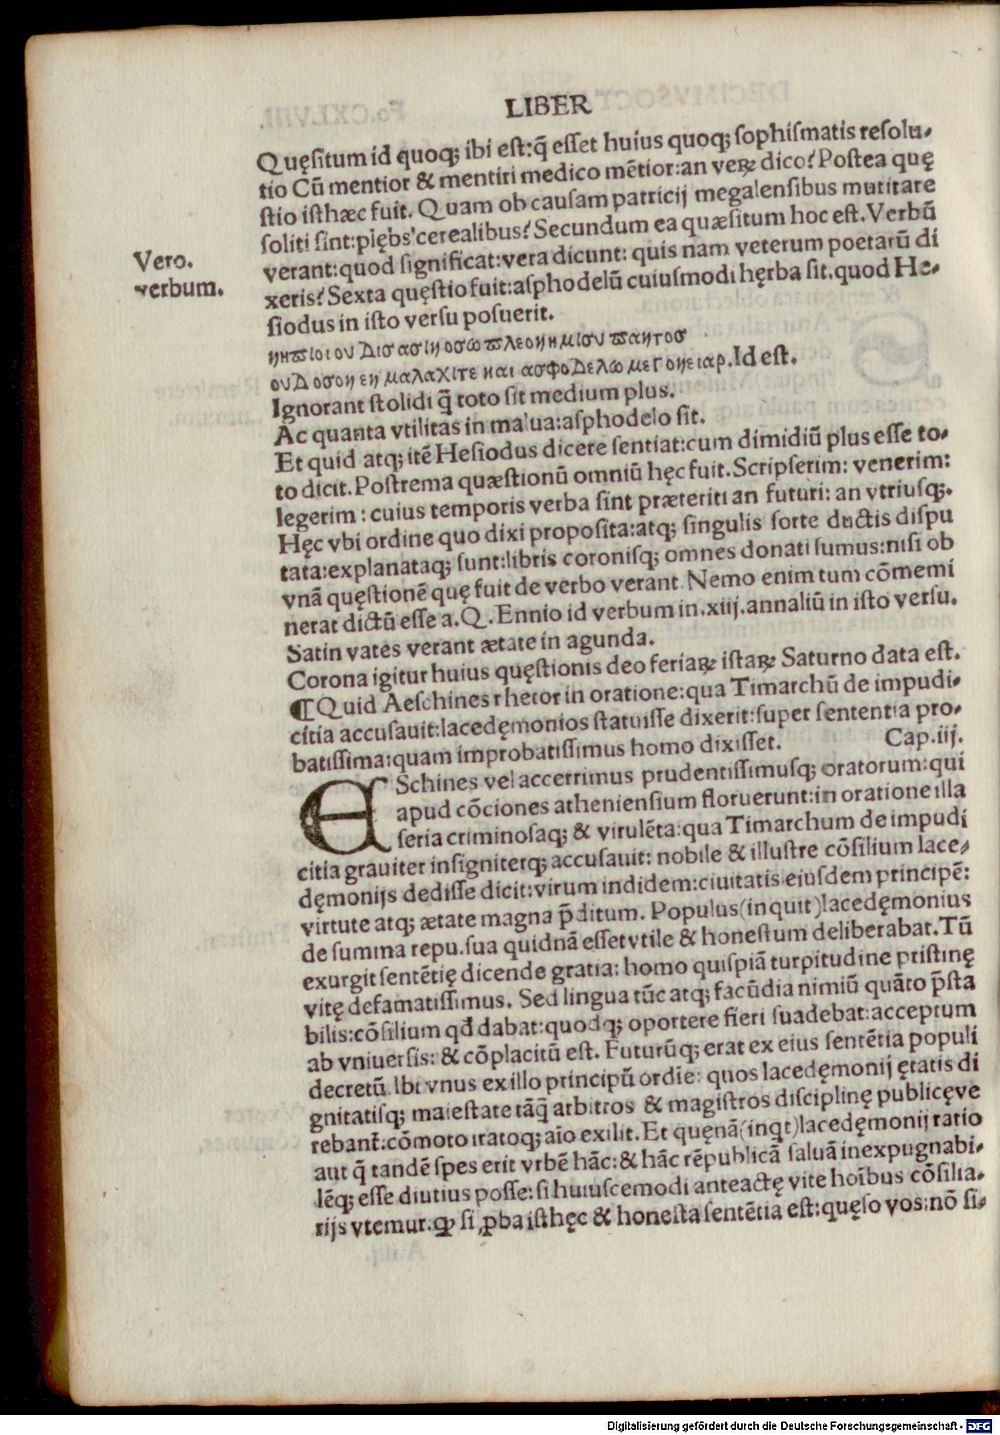 LIBER
Quęſitum id quoqꝫ ibi eſt:q̃ eſſet huius quoqꝫ ſophiſmatis reſolu-
tio Cũ mentior & mentiri me dico mẽtior:an veꝝ dico? Poſtea quę
ſtio iſthæc fuit. Quam ob cauſam patricij megalenſibus mutitare
ſoliti ſint:plębs cerealibus? Secundum ea quæſitum hoc eſt. Verbũ
Vero.
verbum.
verant:quod ſignificat:vera dicunt: quis nam veterum poetarũ di
xeris? Sexta quęſtio fuit:aſphodelũ cuiuſmodi hęrba ſit.quod He-
ſiodus in iſto verſu poſuerit.
νηπιοι ου Δισασιν οσω πλεον ημισυ παντοσ
ουΔ οσον εν μαλαχιτε και ασφοΔελω μεγ ονειαρ.Id eſt.
Ignorant ſtolidi q̃ toto ſit medium plus.
Ac quanta vtilitas in malua:aſphodelo ſit.
Et quid atqꝫ itẽ Heſiodus dicere ſentiat:cum dimidiũ plus eſſe to-
to dicit. Poſtrema quæſtionũ omniũ hęc fuit. Scripſerim: venerim:
legerim: cuius temporis verba ſint præteriti an futuri: an vtriuſqꝫ.
Hęc vbi ordine quo dixi propoſita:atqꝫ ſingulis ſorte ductis diſpu
tata:explanataqꝫ ſunt:libris coroniſqꝫ omnes donati ſumus:niſi ob
vnã quęſtionẽ quę fuit de verbo verant. Nemo enim tum cõmemi
nerat dictũ eſſe a.Q. Ennio id verbum in.xiij.annaliũ in iſto verſu.
Satin vates verant ætate in agunda.
Corona igitur huius quęſtionis deo feriaꝝ iſtaꝝ Saturno data eſt.
¶Quid Aeſchines rhetor in oratione:qua Timarchũ de impudi-
citia accuſauit:lacedęmonios ſtatuiſſe dixerit:ſuper ſententia pro-
batiſſima:quam improbatiſſimus homo dixiſſet. Cap.iij.
ESchines vel accerrimus prudentiſſimuſqꝫ oratorum:qui
apud cõciones athenienſium floruerunt:in oratione illa
ſeria criminoſaqꝫ & virulẽta:qua Timarchum de impudi
citia grauiter inſigniterqꝫ accuſauit: nobile & illuſtre cõſilium lace-
dęmonijs dediſſe dicit:virum indidem:ciuitatis eiuſdem principẽ:
virtute atqꝫ ætate magna p̃ditum. Populus(inquit)lacedęmonius
de ſumma repu.ſua quidnã eſſet vtile & honeſtum deliberabat. Tũ
exurgit ſentẽtię dicende gratia: homo quiſpiã turpitudine priſtinę
vitę defamatiſſimus. Sed lingua tũc atqꝫ facũdia nimiũ quãto p̃ſta
bilis:cõſilium qđ dabat:quodqꝫ oportere fieri ſuadebat:acceptum
ab vniuerſis: & cõplacitũ eſt. Futurũqꝫ erat ex eius ſentẽtia populi
decretũ. Ibi vnus ex illo principũ ordĩe: quos lacedęmonij ętatis di
gnitatiſqꝫ maieſtate tãq̃ arbitros & magiſtros diſciplinę publicęve
rebant̃:cõmoto iratoqꝫ aĩo exilit. Et quęnã(inq̃t)lacedęmonij ratio
aut q̃ tandẽ ſpes erit vrbẽ hãc:& hãc rẽpublicã ſaluã inexpugnabi-
lẽqꝫ eſſe diutius poſſe:ſi huiuſcemodi anteactę vite hoĩbus cõſilia-
rijs vtemur.ꝙ ſi ꝓba iſthęc & honeſta ſentẽtia eſt:quęſo vos:nõ ſi-
Digitalisierung gefördert durch die Deutsche Forschungsgemeinschaft - DFG